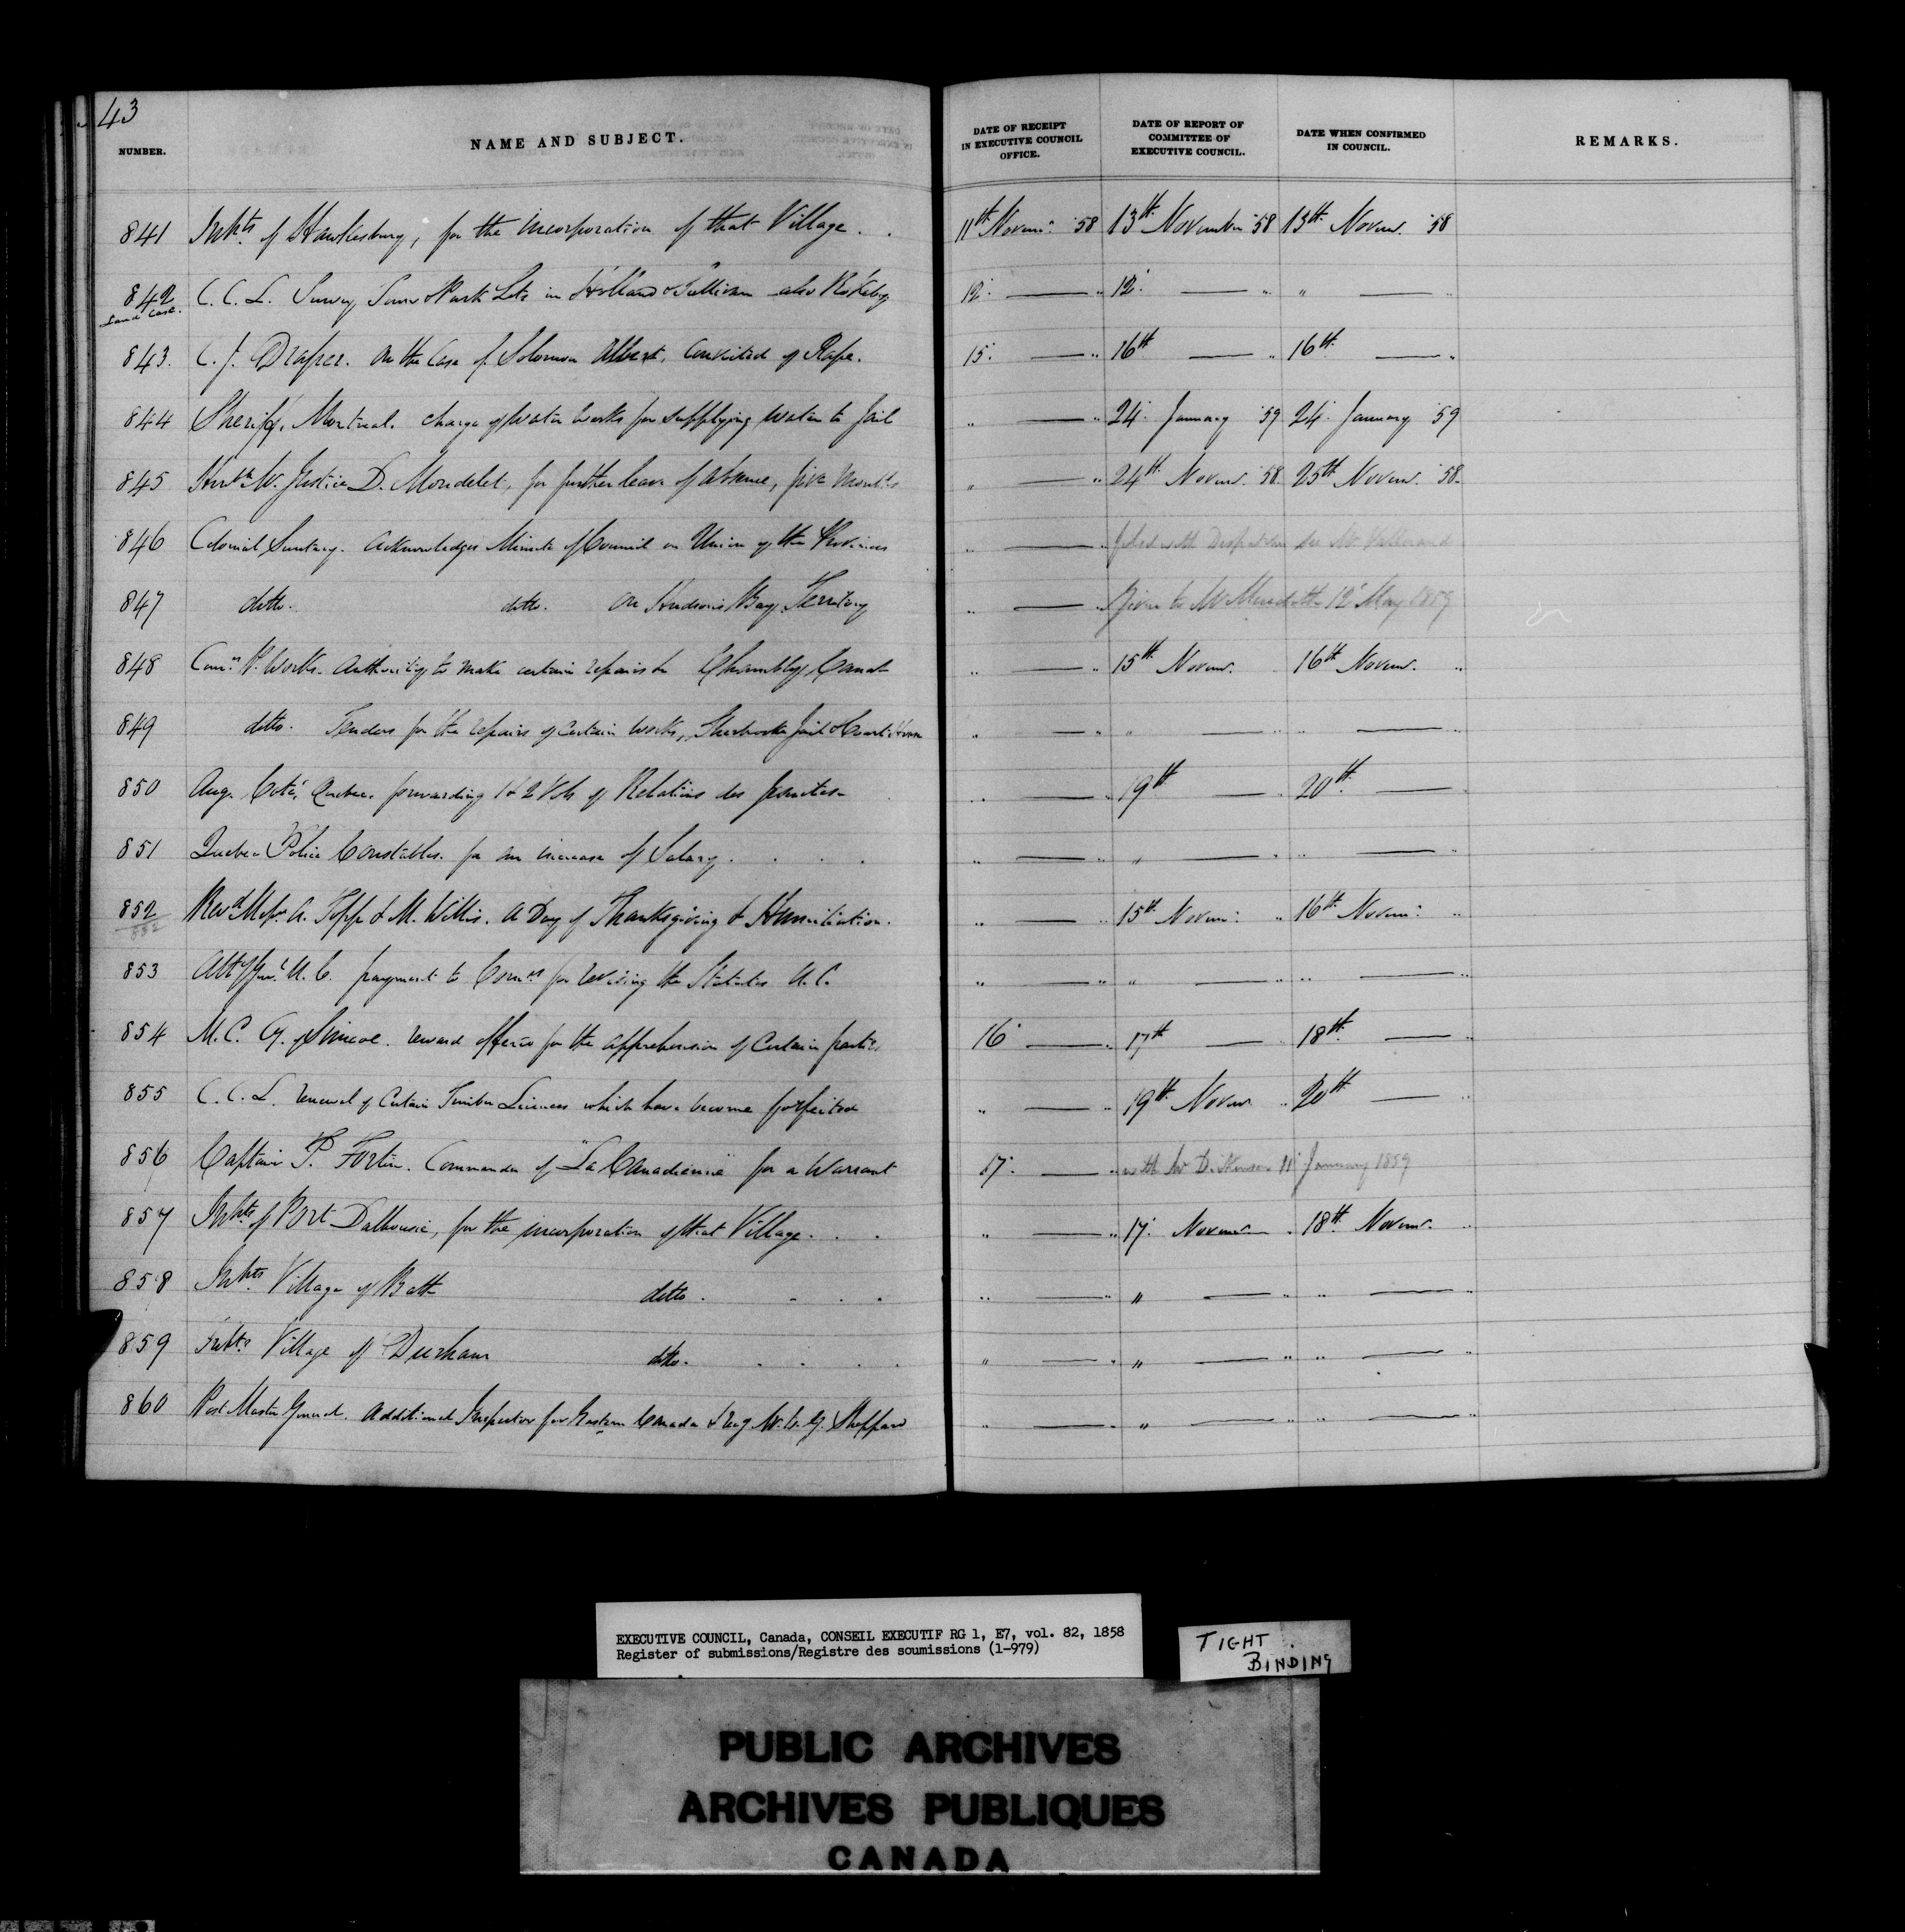 43
NUMBER. NAME AND SUBJECT. DATE OF RECEIPT IN EXECUTIVE COUNCIL OFFICE. DATE OF REPORT OF COMMITTEE OF EXECUTIVE COUNCIL. DATE WHEN CONFIRMED IN COUNCIL. REMARKS.
841 Inhts. of Hawkesbury, for the incorporation of that Village . . 11th Novem: '58 13th November '58 13th Novem. '58
842 C. C. L. Survey Some Park Lots in Holland & Sullivan also Keppel 12. —— " 12. —— " " —— "
Land Case.
843. C. J. Draper. On the Case of Solomon Albert. Convicted of Rape. 15. —— " 16th —— " 16th —— "
844 Sheriff, Montreal. Charge of Water Works for supplying Water to Jail " —— " 24. January '59 24. January '59
845 Honble Mr. Justice D. Mondelet, for further leave of absence, five Months " —— " 24th Novem. '58 25th Novem. '58.
846 Colonial Secretary. Acknowledges Minute of Council on Union of the Provinces " —— " filed with Despatches see Mr
847 ditto. ditto. on Hudson's Bay Territory " —— " Given to Mr Meredith 12 May 1859
848 Comrs. P. Works. Authority to make certain repairs to Chambly Canal " —— " 15th Novem. 16th Novem. "
849 ditto. Tenders for the repairs of Certain Works, Sherbrooke Jail & Court House " —— " " —— " " —— "
850 Aug. Coté, Quebec. forwarding 1 & 2 Vols of Relations des Jesuites. " —— " 19th —— " 20th —— "
851 Quebec Police Constables. for an increase of Salary . . . . " —— " " —— " " —— "
852 Revd Messrs. A. Topp & M. Willis. A Day of Thanksgiving & Humiliation. " —— " 15th Novem: " 16th Novem: "
852
853 Atty Genl. U. C. payment to Comrs for revising the Statutes U. C. " —— " " —— " " —— "
854 M. C. Cy. of Simcoe. reward offered for the apprehension of Certain parties 16 —— " 17th —— " 18th —— "
855 C. C. L. renewal of Certain Timber Licences which have become forfeited " —— " 19th Novem. " 20th —— "
856 Captain P. Fortin. Commander of "La Canadienne" for a Warrant 17. —— " with Mr Dickinson 11 January 1859
857 Inhts of Port Dalhousie, for the incorporation of that Village. . . " —— " 17. Novem. " 18th Novem. "
858 Inhts. Village of Bath ditto . . . . " —— " " —— " " —— "
859 Inhts Village of Durham ditto. . . . . " —— " " —— " " —— "
860 Post Master General. Additional Inspector for Eastern Canada & Mr. W. G. Sheppard " —— " " —— " " —— "
EXECUTIVE COUNCIL, Canada, CONSEIL EXECUTIF RG 1, E7, vol. 82, 1858
Register of submissions/Registre des soumissions (1-979)
TIGHT
BINDING
PUBLIC ARCHIVES
ARCHIVES PUBLIQUES
CANADA